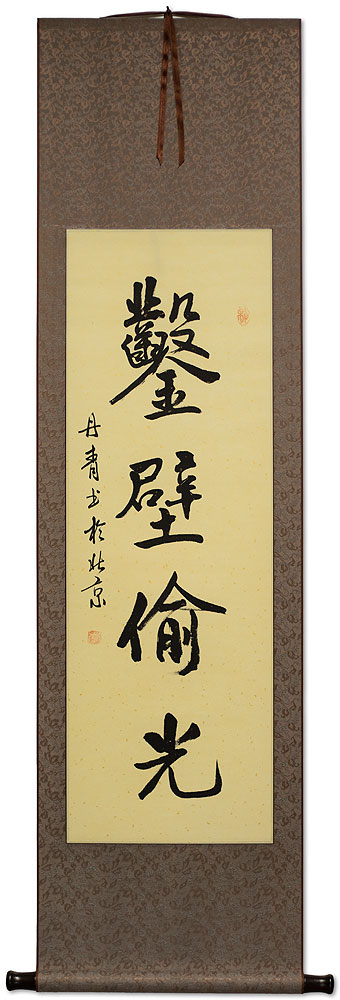 鑿壁偷光
丹青书於北京